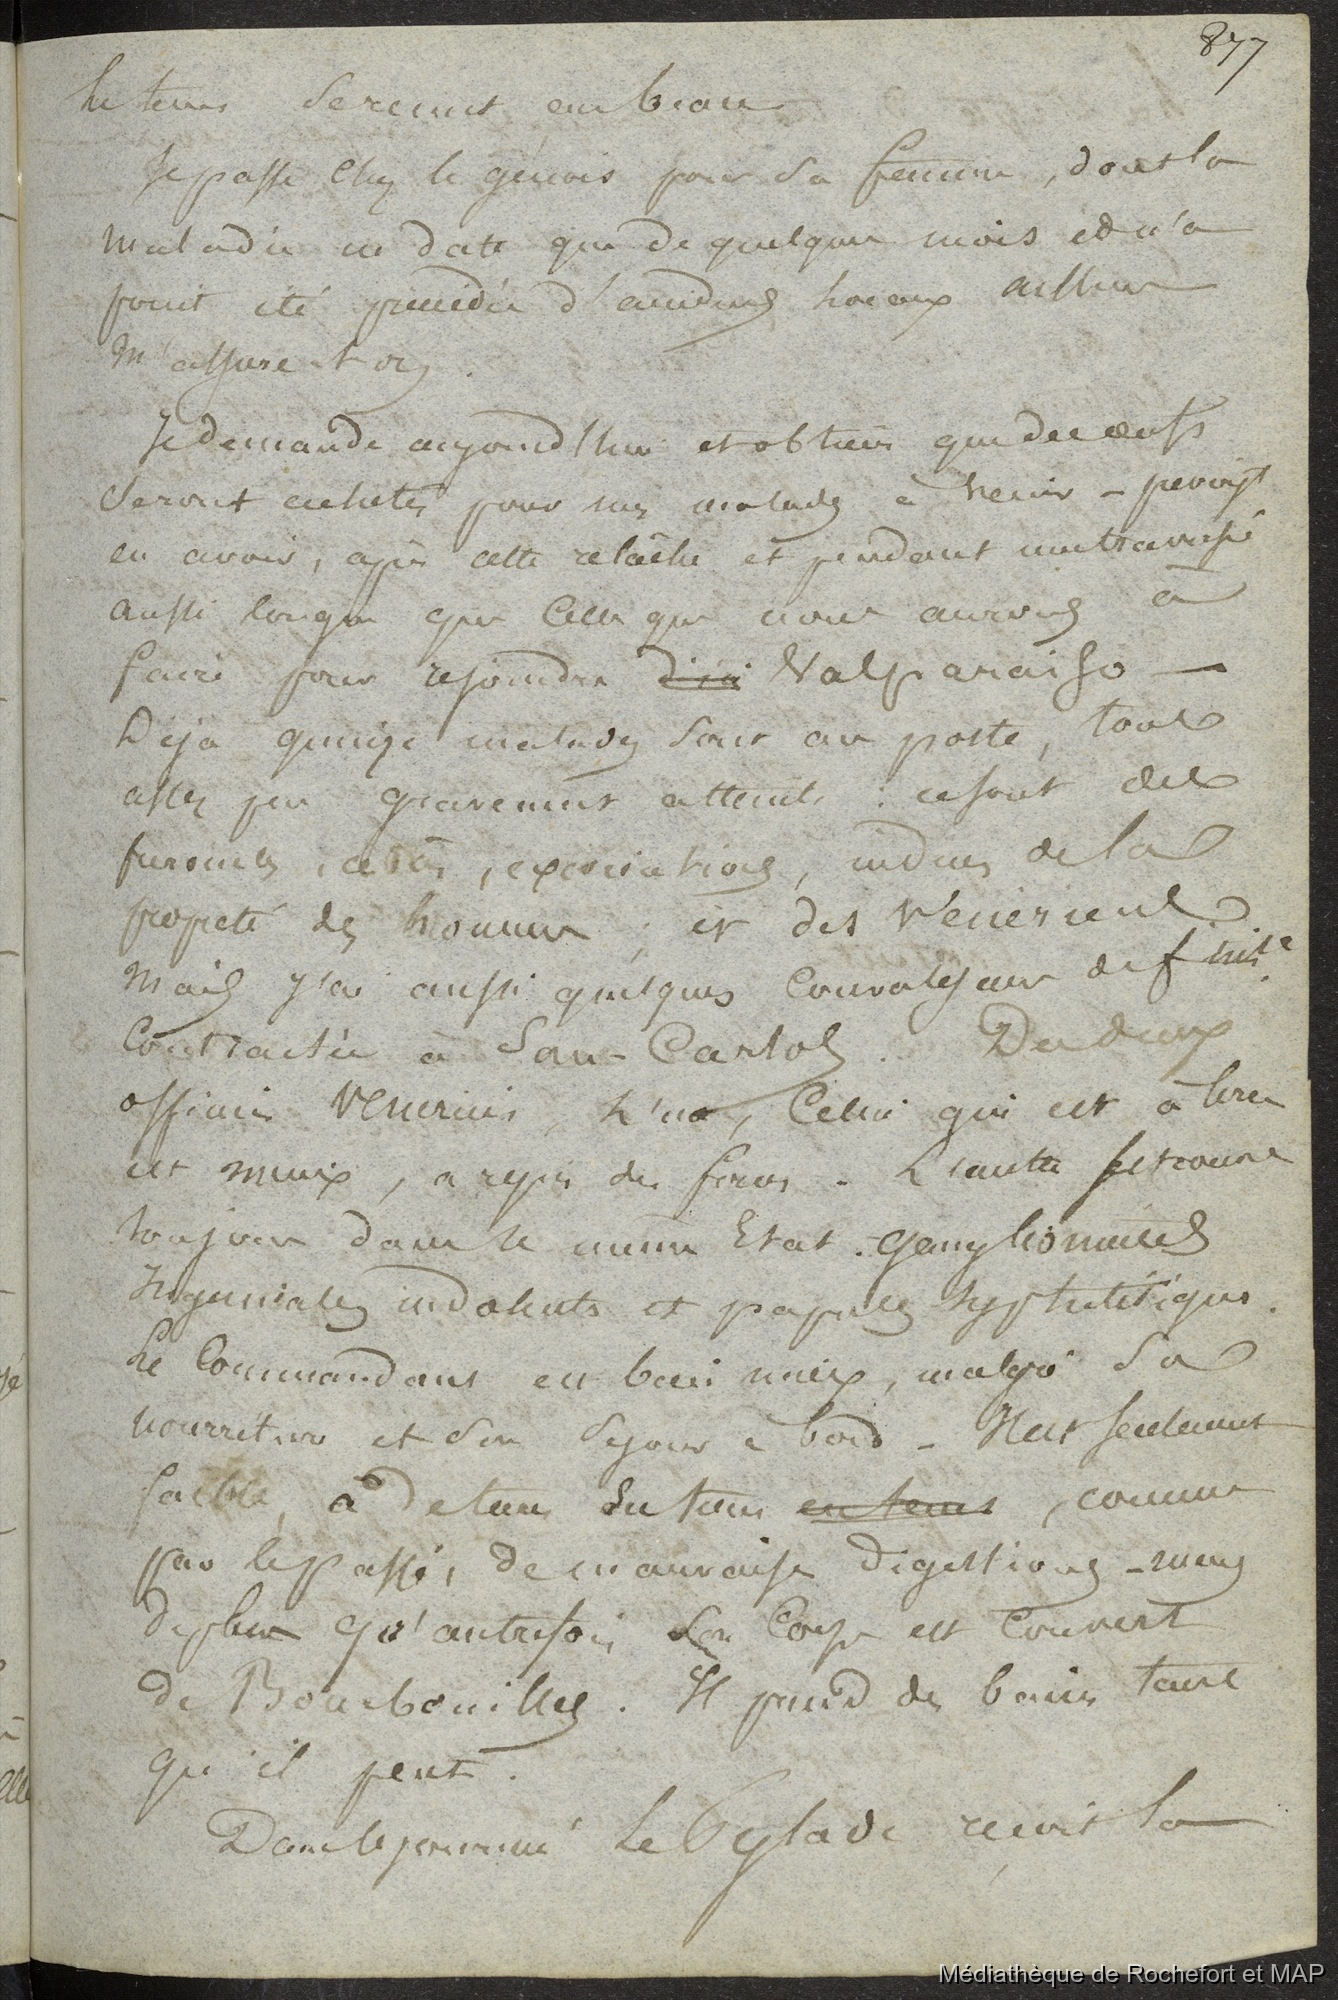 877
Le tems se remet au beau
Je passe chez le génois pour sa femme, dont la
maladie ne date que de quelques mois et n'a
point été précédée d'accidens locaux ailleurs
m'assure-t-on.
Je demande aujourd'hui et obtiens que des œufs
seront achetés pour nos malades à venir - pour
en avoir, après cette relâche et pendant une traversée
aussi longue que celle que nous aurons à
faire pour rejoindre d'ici Valparaiso -
Déja quinze malades sont au poste, tous
assez peu gravement atteints : ce sont des
furoncles, abcès, excoriations, indices de la
propeté des hommes ; et des vénériens
Mais j'ai aussi quelques convalescens de
contractée à San-Carlos. Des deux
officiers vénériens, l'un, celui qui est à terre
est mieux, a repris des forces - L'autre se trouve
toujours dans le même état. ganglionnites
inguinales indolents et papules syphilitiques.
Le Commandant est bien mieux, malgré sa
nourriture et son séjour à bord - Il est seulement
faible, a de tems en tems en tems, comme
par le passé, de mauvaises digestions - mais
de plus qu'autrefois son corps est couvert
de Bourbouilles. Il prend des bains tant
qu'il peut.
Dans la journée Le Pylade reçoit la
Médiathèque de Rochefort et MAP